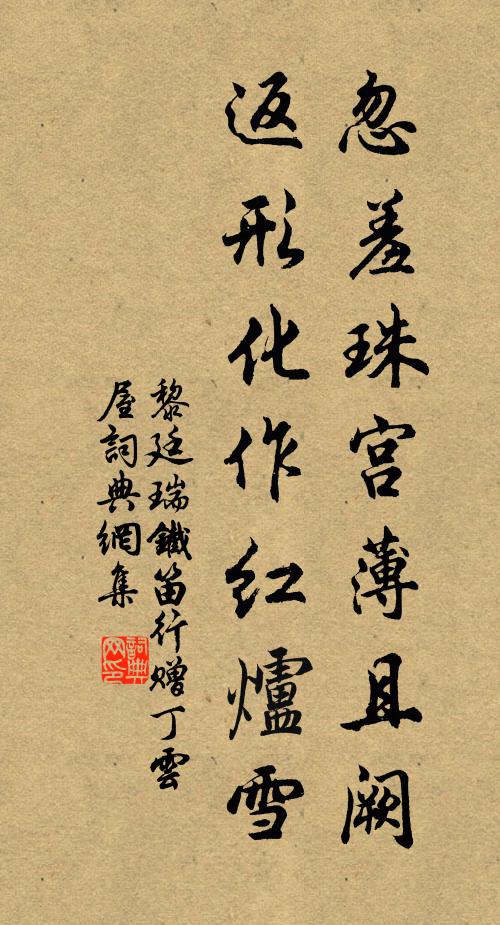 忽羞珠宫薄且阙
返形化作红爐雪
黎廷瑞鐵笛行赠丁雲
屋詞典網集
詞典
网印